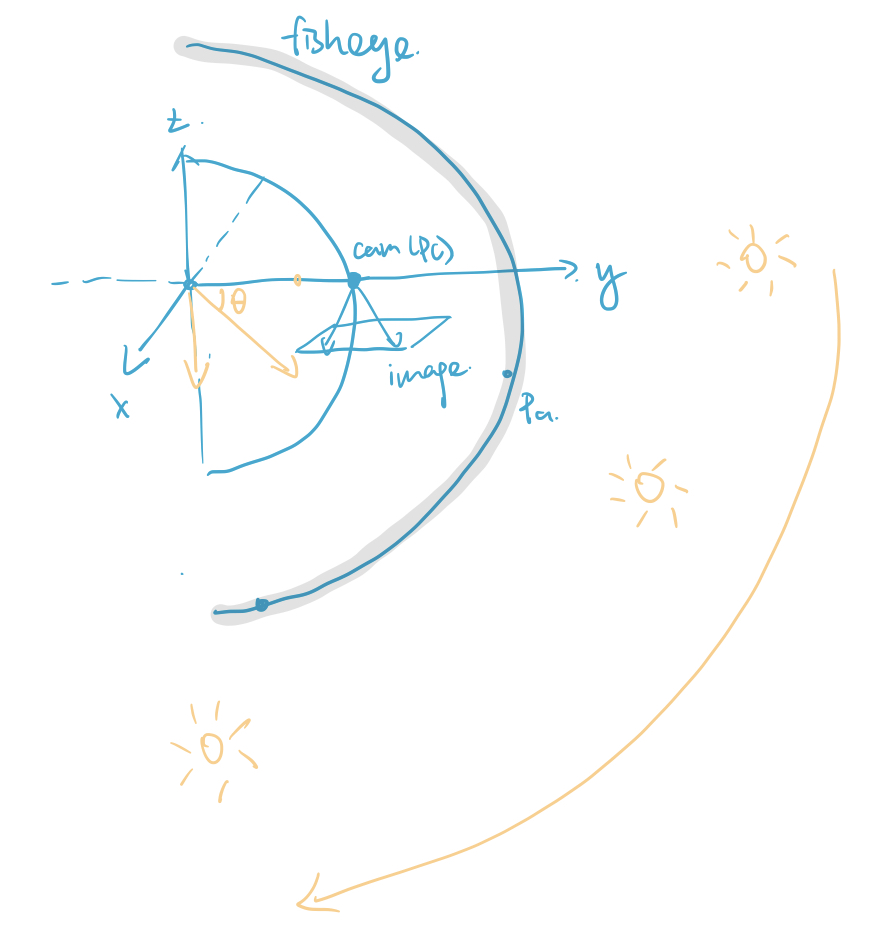 fisheye.
z.
cam(Pc)
y
θ
x
image.
Pa.